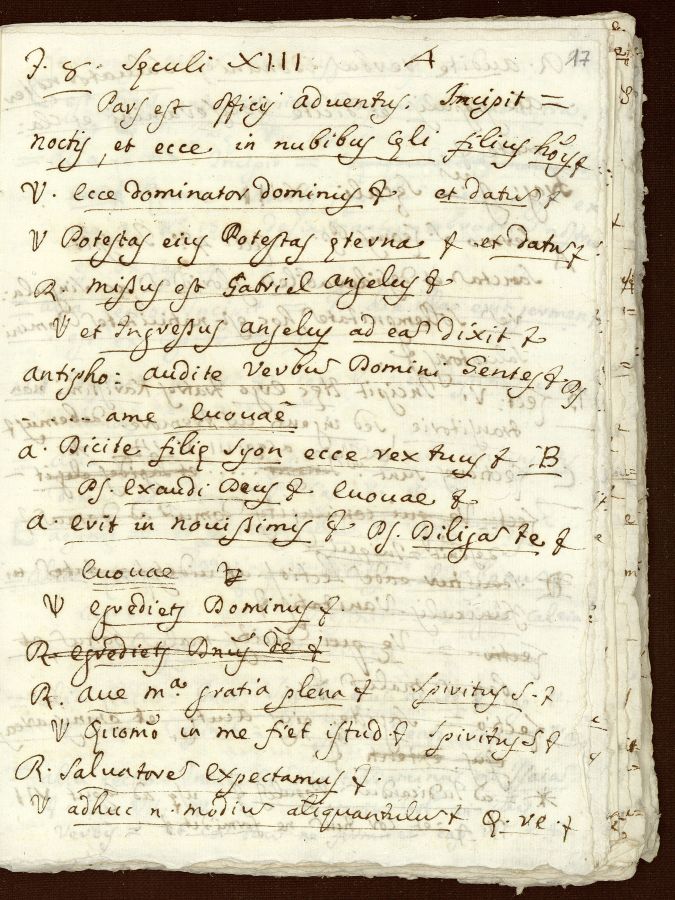 J. 8. Sęculi XIII A 17
Pars est officij adventus. Incipit =
noctis, et ecce in nubibus cęli filius hoĩs &
V. Ecce dominator dominus & et datus &
V Potestas eius Potestas ęterna & et datus &
R missus est Gabriel Angelus &
V et Ingressus angelus ad eaʒ dixit &
antipho: audite verbuʒ Domini Gentes & Ps
ame Euouaē
a. Dicite filię Syon ecce rex tuus & B
Ps. Exaudi Deus & Euouae &
a. erit in nouissimus & Ps. Diligaʒ te &
Euouae
V egredietʒ Dominus &
R. egredietʒ Dnũs de &
R. Aue mᵃ gratia plena & Spiritus S. &
V Quomõ in me fiet istud & Spiritus S &
R. Saluatoreʒ Expectamus &.
V adhuc n. modiuʒ aliquantuluʒ & Q. ve. &